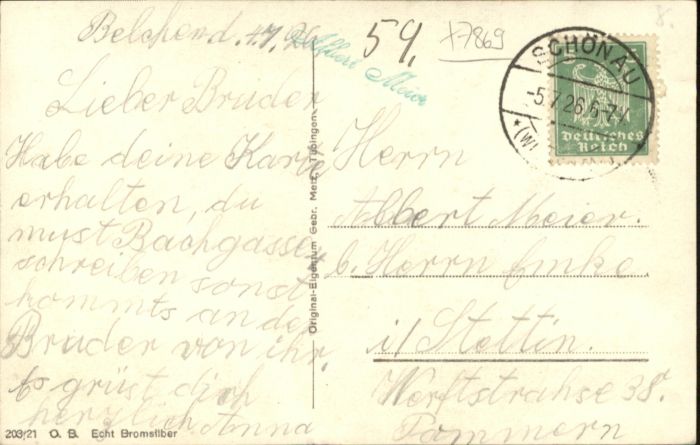 Belchend. 4.7.26
59.
+-7869
Albert Meier
Lieber Bruder
Habe deine Karte
erhalten, du
must Bachgasse
schreiben sonst
kommts an der
Bruder von ihr.
Es grüst dich
herzlich Anna
203/21 O. B. Echt Bromsilber
Original-Eigentum Gebr. Metz, Tübingen
SCHÖNAU
-5.7.26.6-7
*(W
Deutsches
Reich
Herrn
Albert Meier.
b. Herrn Emke.
i/ Stettin.
Werftstrahse 38.
Pommern